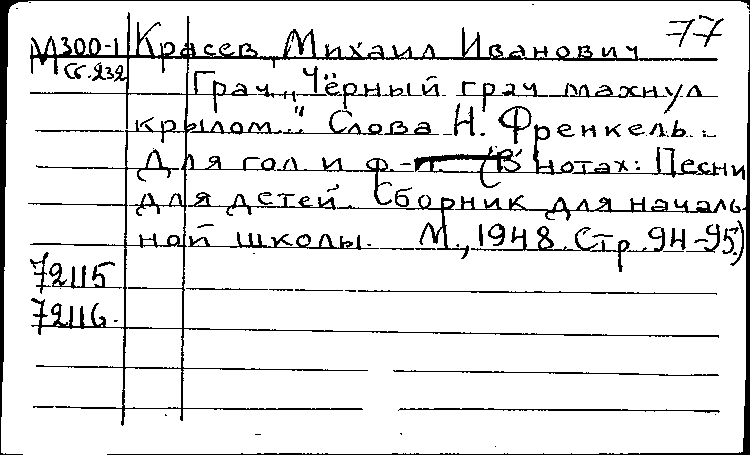 77
М300-1 Красев, Михаил Иванович
Сб.232
Грач „Чёрный грач махнул
крылом..." Слова Н. Френкель.
Для гол и ф.-п. (В нотах: Песни
для детей. Сборник для началь-
ной школы. М., 1948. Стр. 94-95.)
72115
72116.